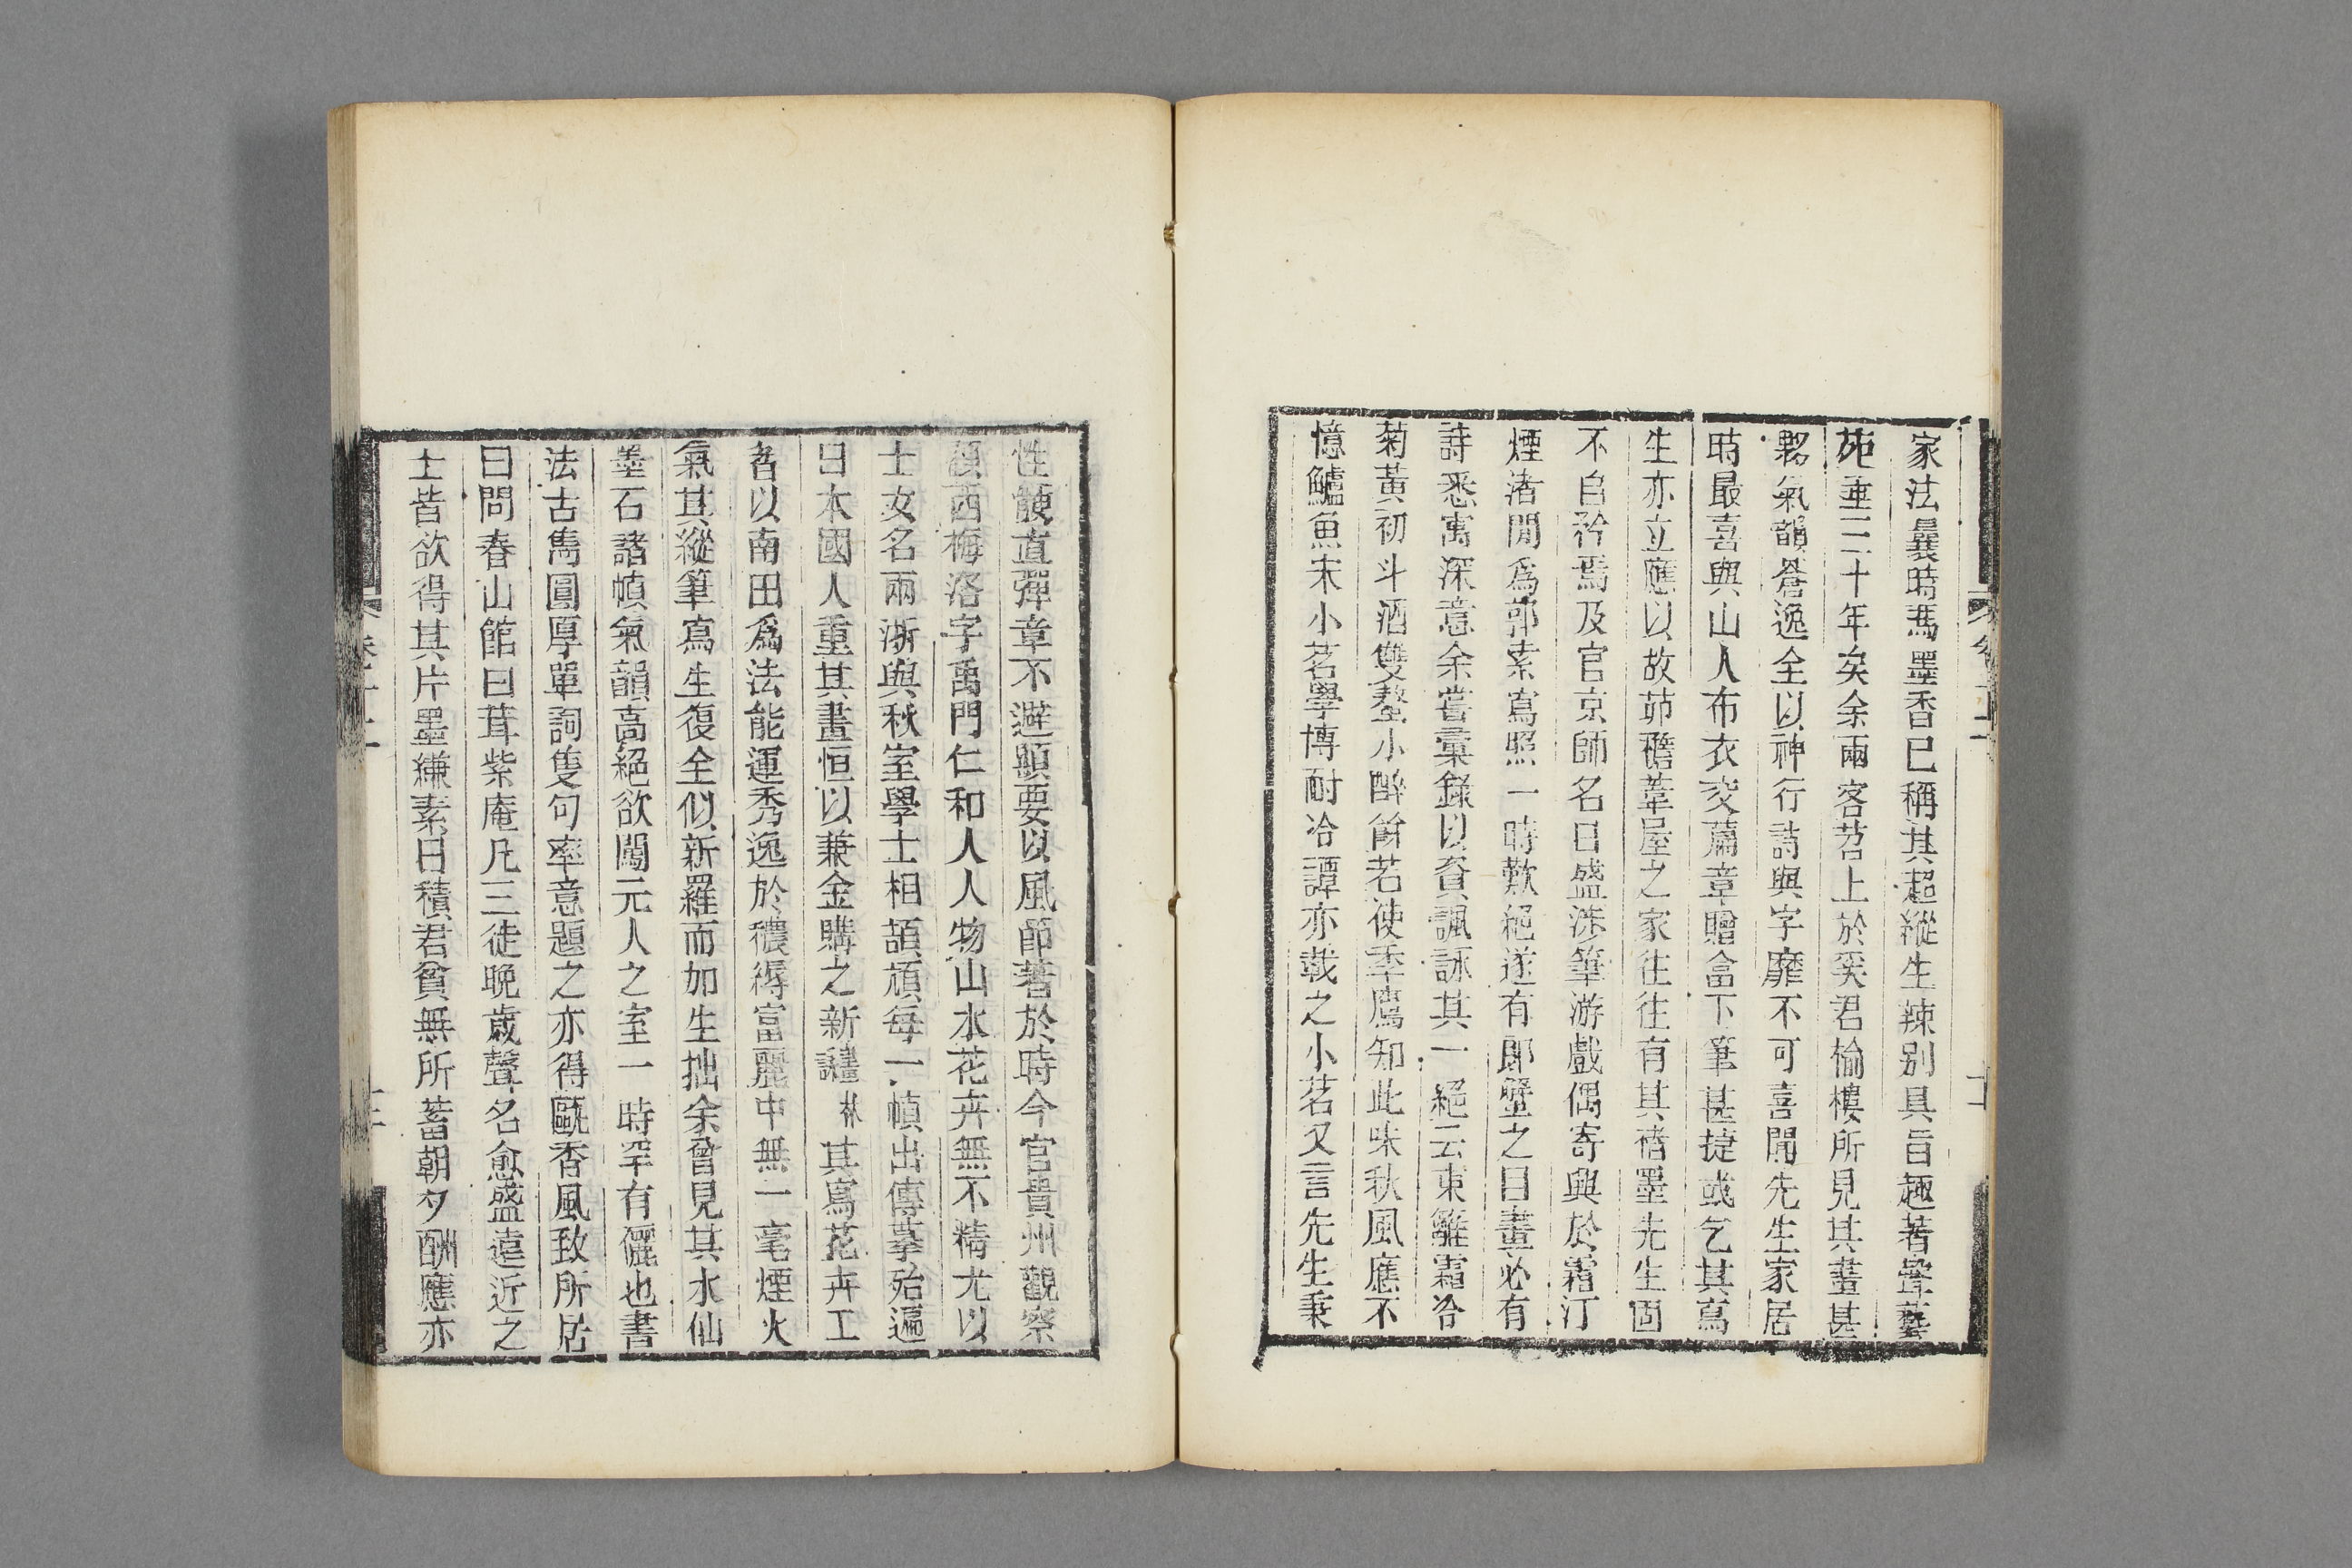 家法曩時馮墨香已稱其超縱生辣别具旨趣著聲藝
苑垂三十年矣余兩客苕上於奚君榆樓所見其畫甚
夥氣韻蒼逸全以神行詩與字靡不可喜聞先生家居
時最喜與山人布衣交蕭章贈畣下筆甚捷或乞其寫
生亦立應以故茆檐葦屋之家往往有其禇墨先生固
不自矜焉及官京師名日盛渉筆游戲偶寄興於霜汀
煙渚閒爲郭索寫照一時歎絕遂有郎蟹之目畫必有
詩悉寓深意余嘗彙錄以資諷詠其一絕云東籬霜冷
菊黃初斗酒雙螯小醉餘若使季鷹知此味秋風應不
憶鱸魚宋小茗學博耐冷譚亦載之小茗又言先生秉
性骾直彈章不避顯要以風節著於時今官貴州觀察
顧西梅洛字禹門仁和人人物山水花卉無不精尤以
士女名兩浙與秋室學士相頡頏每一幀出傳摹殆遍
日本國人重其畫恒以兼金購之新譴林其寫花卉工
者以南田爲法能運秀逸於穠縟富麗中無一毫煙火
氣其縱筆寫生復全似新羅而加生拙余曾見其水仙
墨石諸幀氣韻高絕欲闖元人之室一時罕有儷也書
法古雋圓厚單詞隻句率意題之亦得甌香風致所居
曰問春山館曰茸紫庵凡三徒晚歲聲名愈盛遠近之
士皆欲得其片墨縑素日積君貧無所蓄朝夕酬應亦